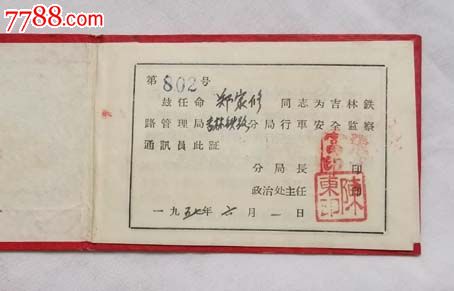 7788.com
中国收藏热线
第802号
兹任命 郑家修 同志为吉林鉄
路管理局吉林鉄路分局行車安全監察
通訊員此証
分局長 印
政治处主任 印
陳 東印
一九五七年六月一日